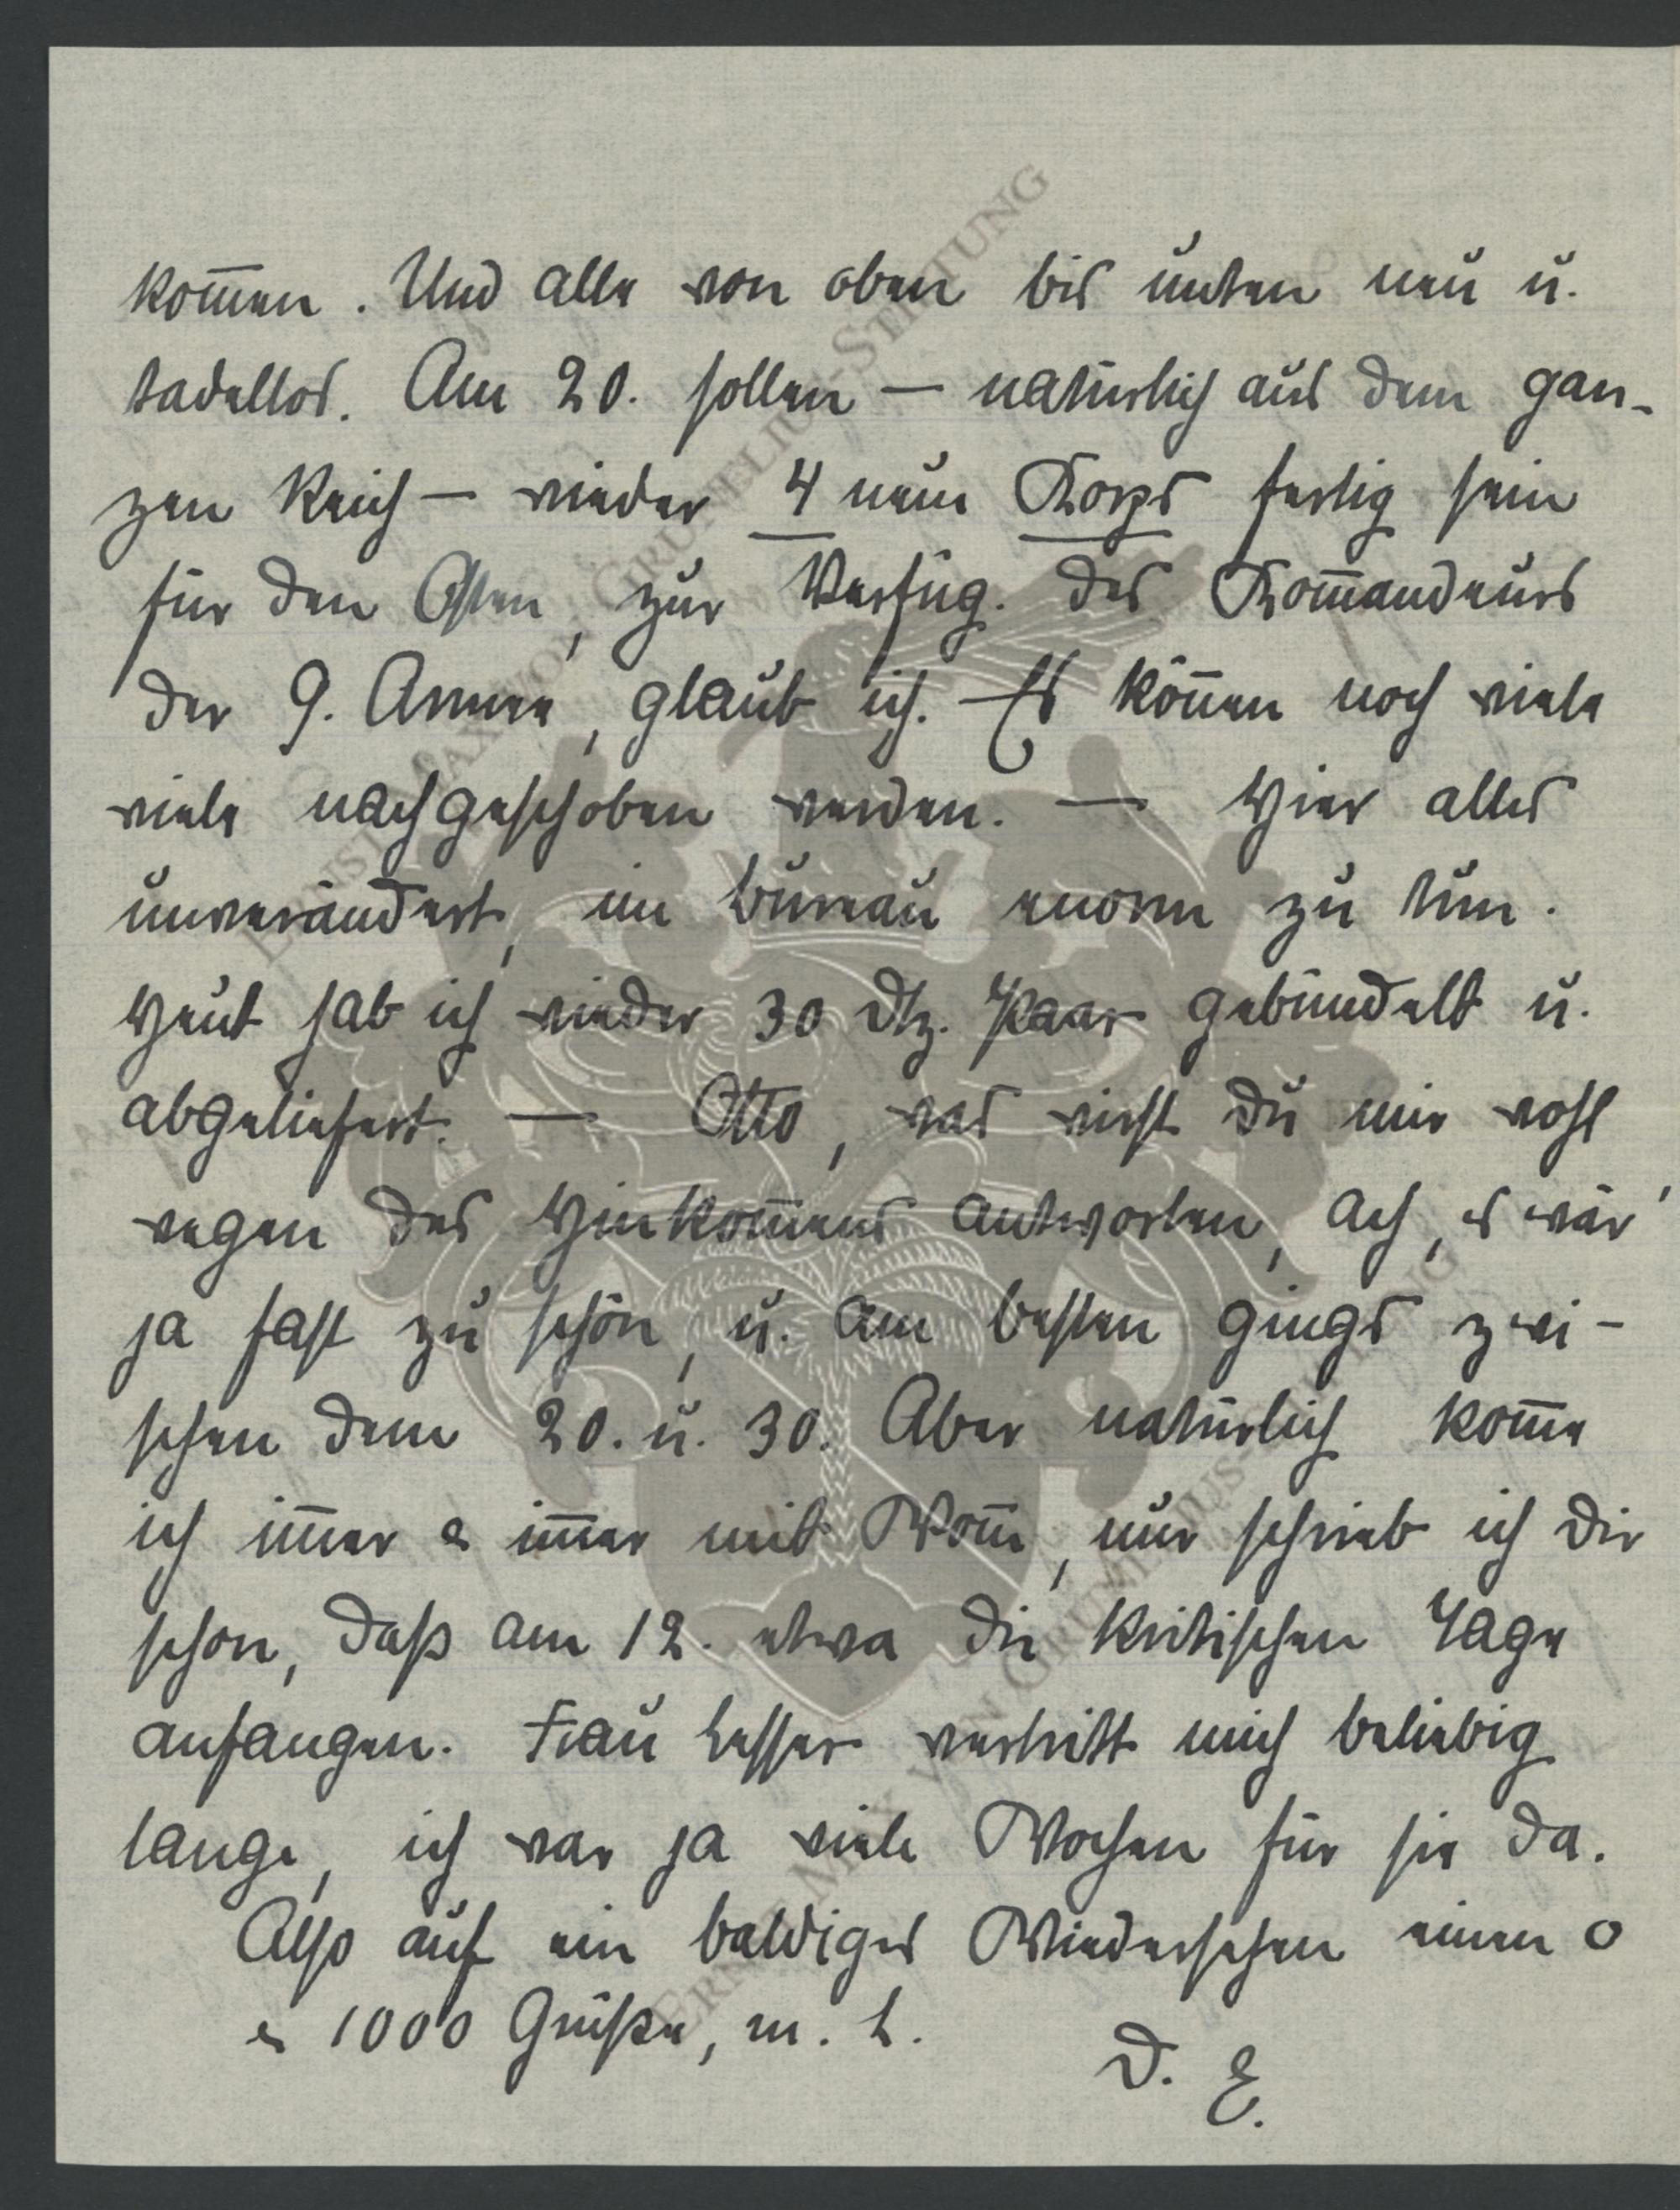 kom̅en. Und alle von oben bis unten neu u.
tadellos. Am 20. sollen — natürlich aus dem gan-
zen Reich — wieder 4 neue Korps fertig sein
für den Osten, zur Verfüg. des Kom̅andeurs
der 9. Armee, glaub ich. Es kön̅en noch viele
viele nachgeschoben werden. — Hier alles
unverändert, im Bureau enorm zu tun.
Heut hab ich wieder 30 Dtz. Paar gebündelt u.
abgeliefert. — Otto, was wirst Du mir wohl
wegen des Hinkom̅ens antworten, ach, es wär'
ja fast zu schön, u. am besten gings zwi-
schen dem 20. u. 30. Aber natürlich kom̅e
ich im̅er & im̅er mit Won̅e, nur schrieb ich Dir
schon, daß am 12. etwa die kritischen Tage
anfangen. Frau Lesser vertritt mich beliebig
lange, ich war ja viele Wochen für sie da.
Also auf ein baldiges Wiedersehen einen o
& 1000 Grüße, m. L.
D. E.
ERNST MAX VON GRUNELIUS-STIFTUNG
ERNST MAX VON GRUNELIUS-STIFTUNG